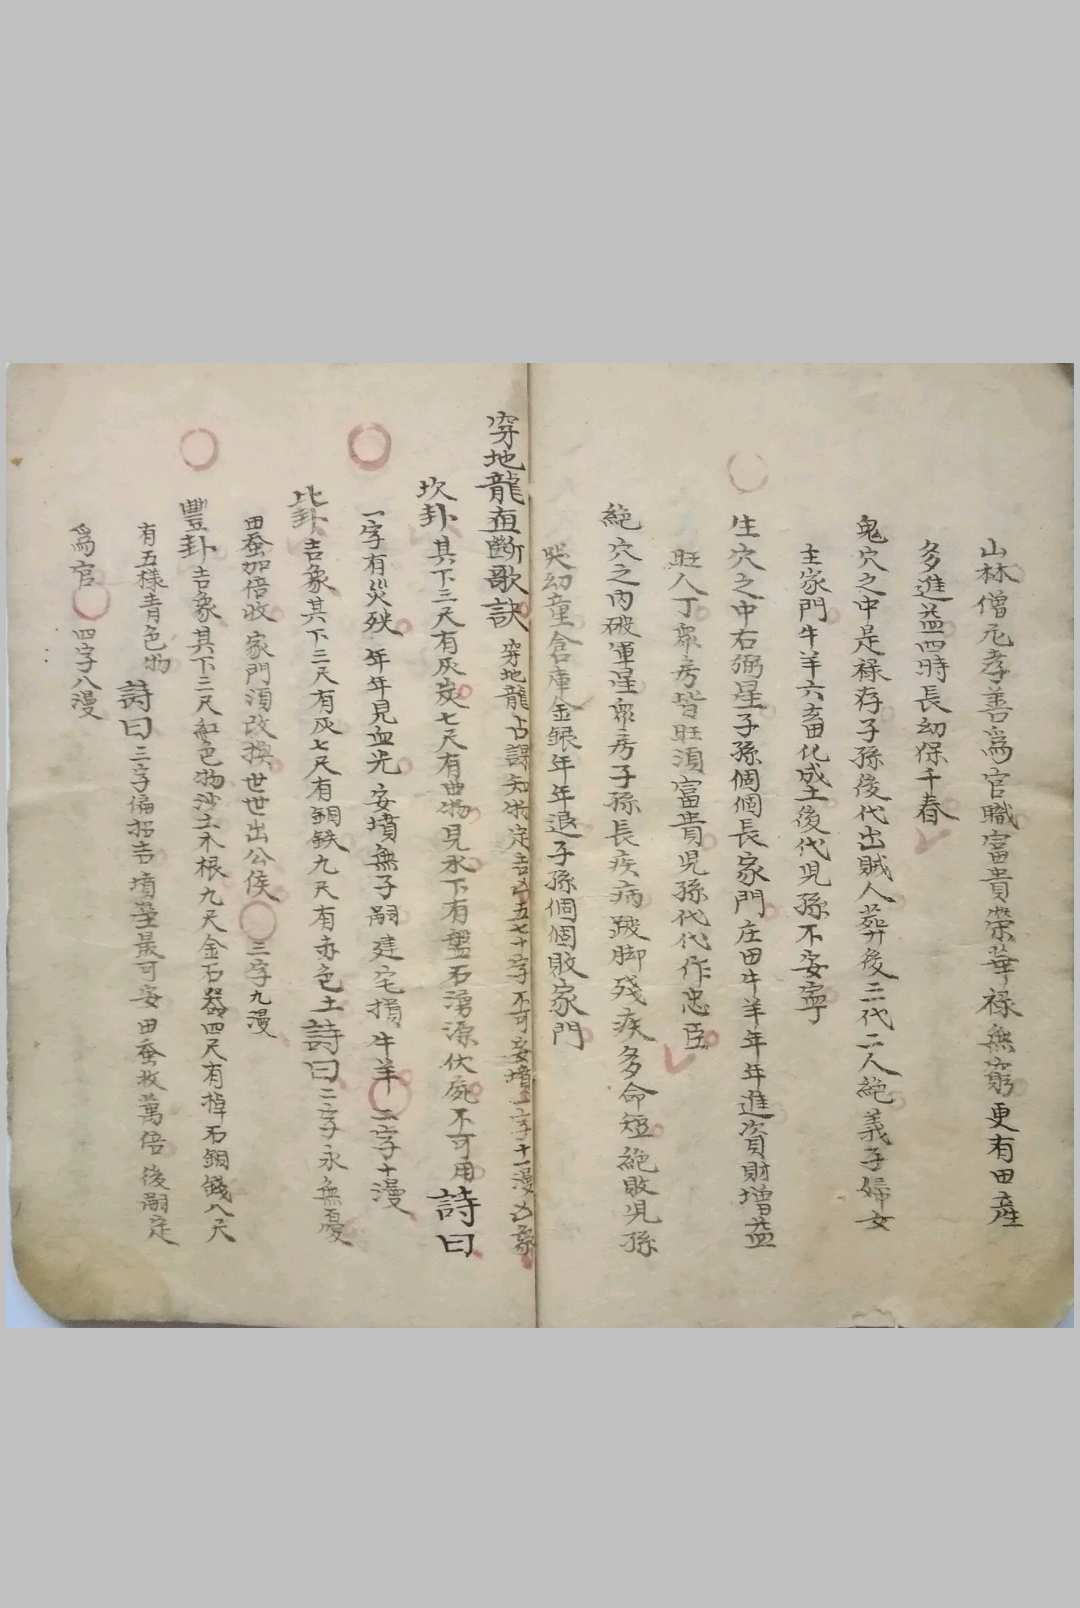 山林僧尼孝善為官職富貴榮華祿無窮更有田產
多進益四時長幼保千春
鬼穴之中是祿存子孫後代出賊人葬後三代二人絕義子婦女
主家門牛羊六畜化塵土後代児孫不安寧
生穴之中右弼星子孫個個長家門庄田牛羊年年進資財增益
旺人丁眾房皆旺須富貴児孫代代作忠臣
絕穴之内破軍星眾房子孫長疾病跛脚殘疾多命短絕敗児孫
哭幼童倉庫金銀年年退子孫個個敗家門
穿地龍直斷歌訣 穿地龍占課知物定吉凶五七十字不可安墳一字十一漫凶象
坎卦 其下三尺有灰炭七尺有曲物見水下有盤石湧源伏屍不可用 詩曰
一字有災殃 年年見血光 安墳無子嗣 建宅損牛羊 二字十漫
比卦 吉象其下三尺有灰七尺有銅鉄九尺有赤色土 詩曰 二字永無憂
田蚕加倍收 家門須改換 世世出公侯 三字九漫
豐卦 吉象其下三尺紅色物沙土木根九尺金石器四尺有掉石銅錢八尺
有五樣青色物 詩曰 三字偏招吉 墳塋最可安 田蚕收萬倍 後嗣定
為官 四字八漫